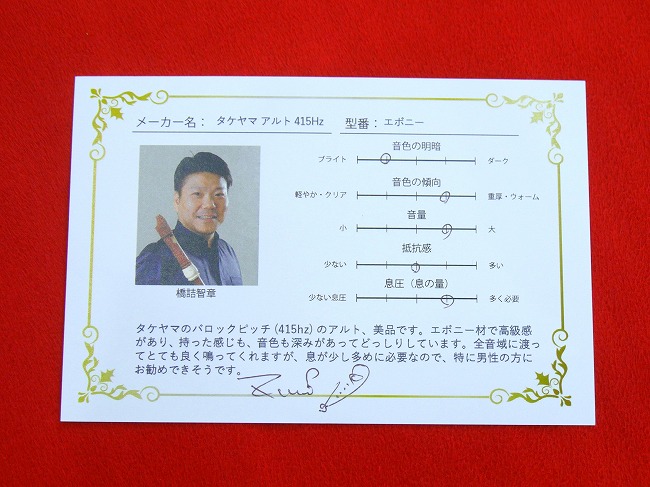 メーカー名： タケヤマ アルト 415Hz 型番： エボニー
音色の明暗
ブライト ダーク
音色の傾向
軽やか・クリア 重厚・ウォーム
音量
小 大
抵抗感
少ない 多い
息圧（息の量）
少ない息圧 多く必要
橋詰智章
タケヤマのバロックピッチ(415hz)のアルト、美品です。エボニー材で高級感
があり、持った感じも、音色も深みがあってどっしりしています。全音域に渡っ
てとても良く鳴ってくれますが、息が少し多めに必要なので、特に男性の方に
お勧めできそうです。